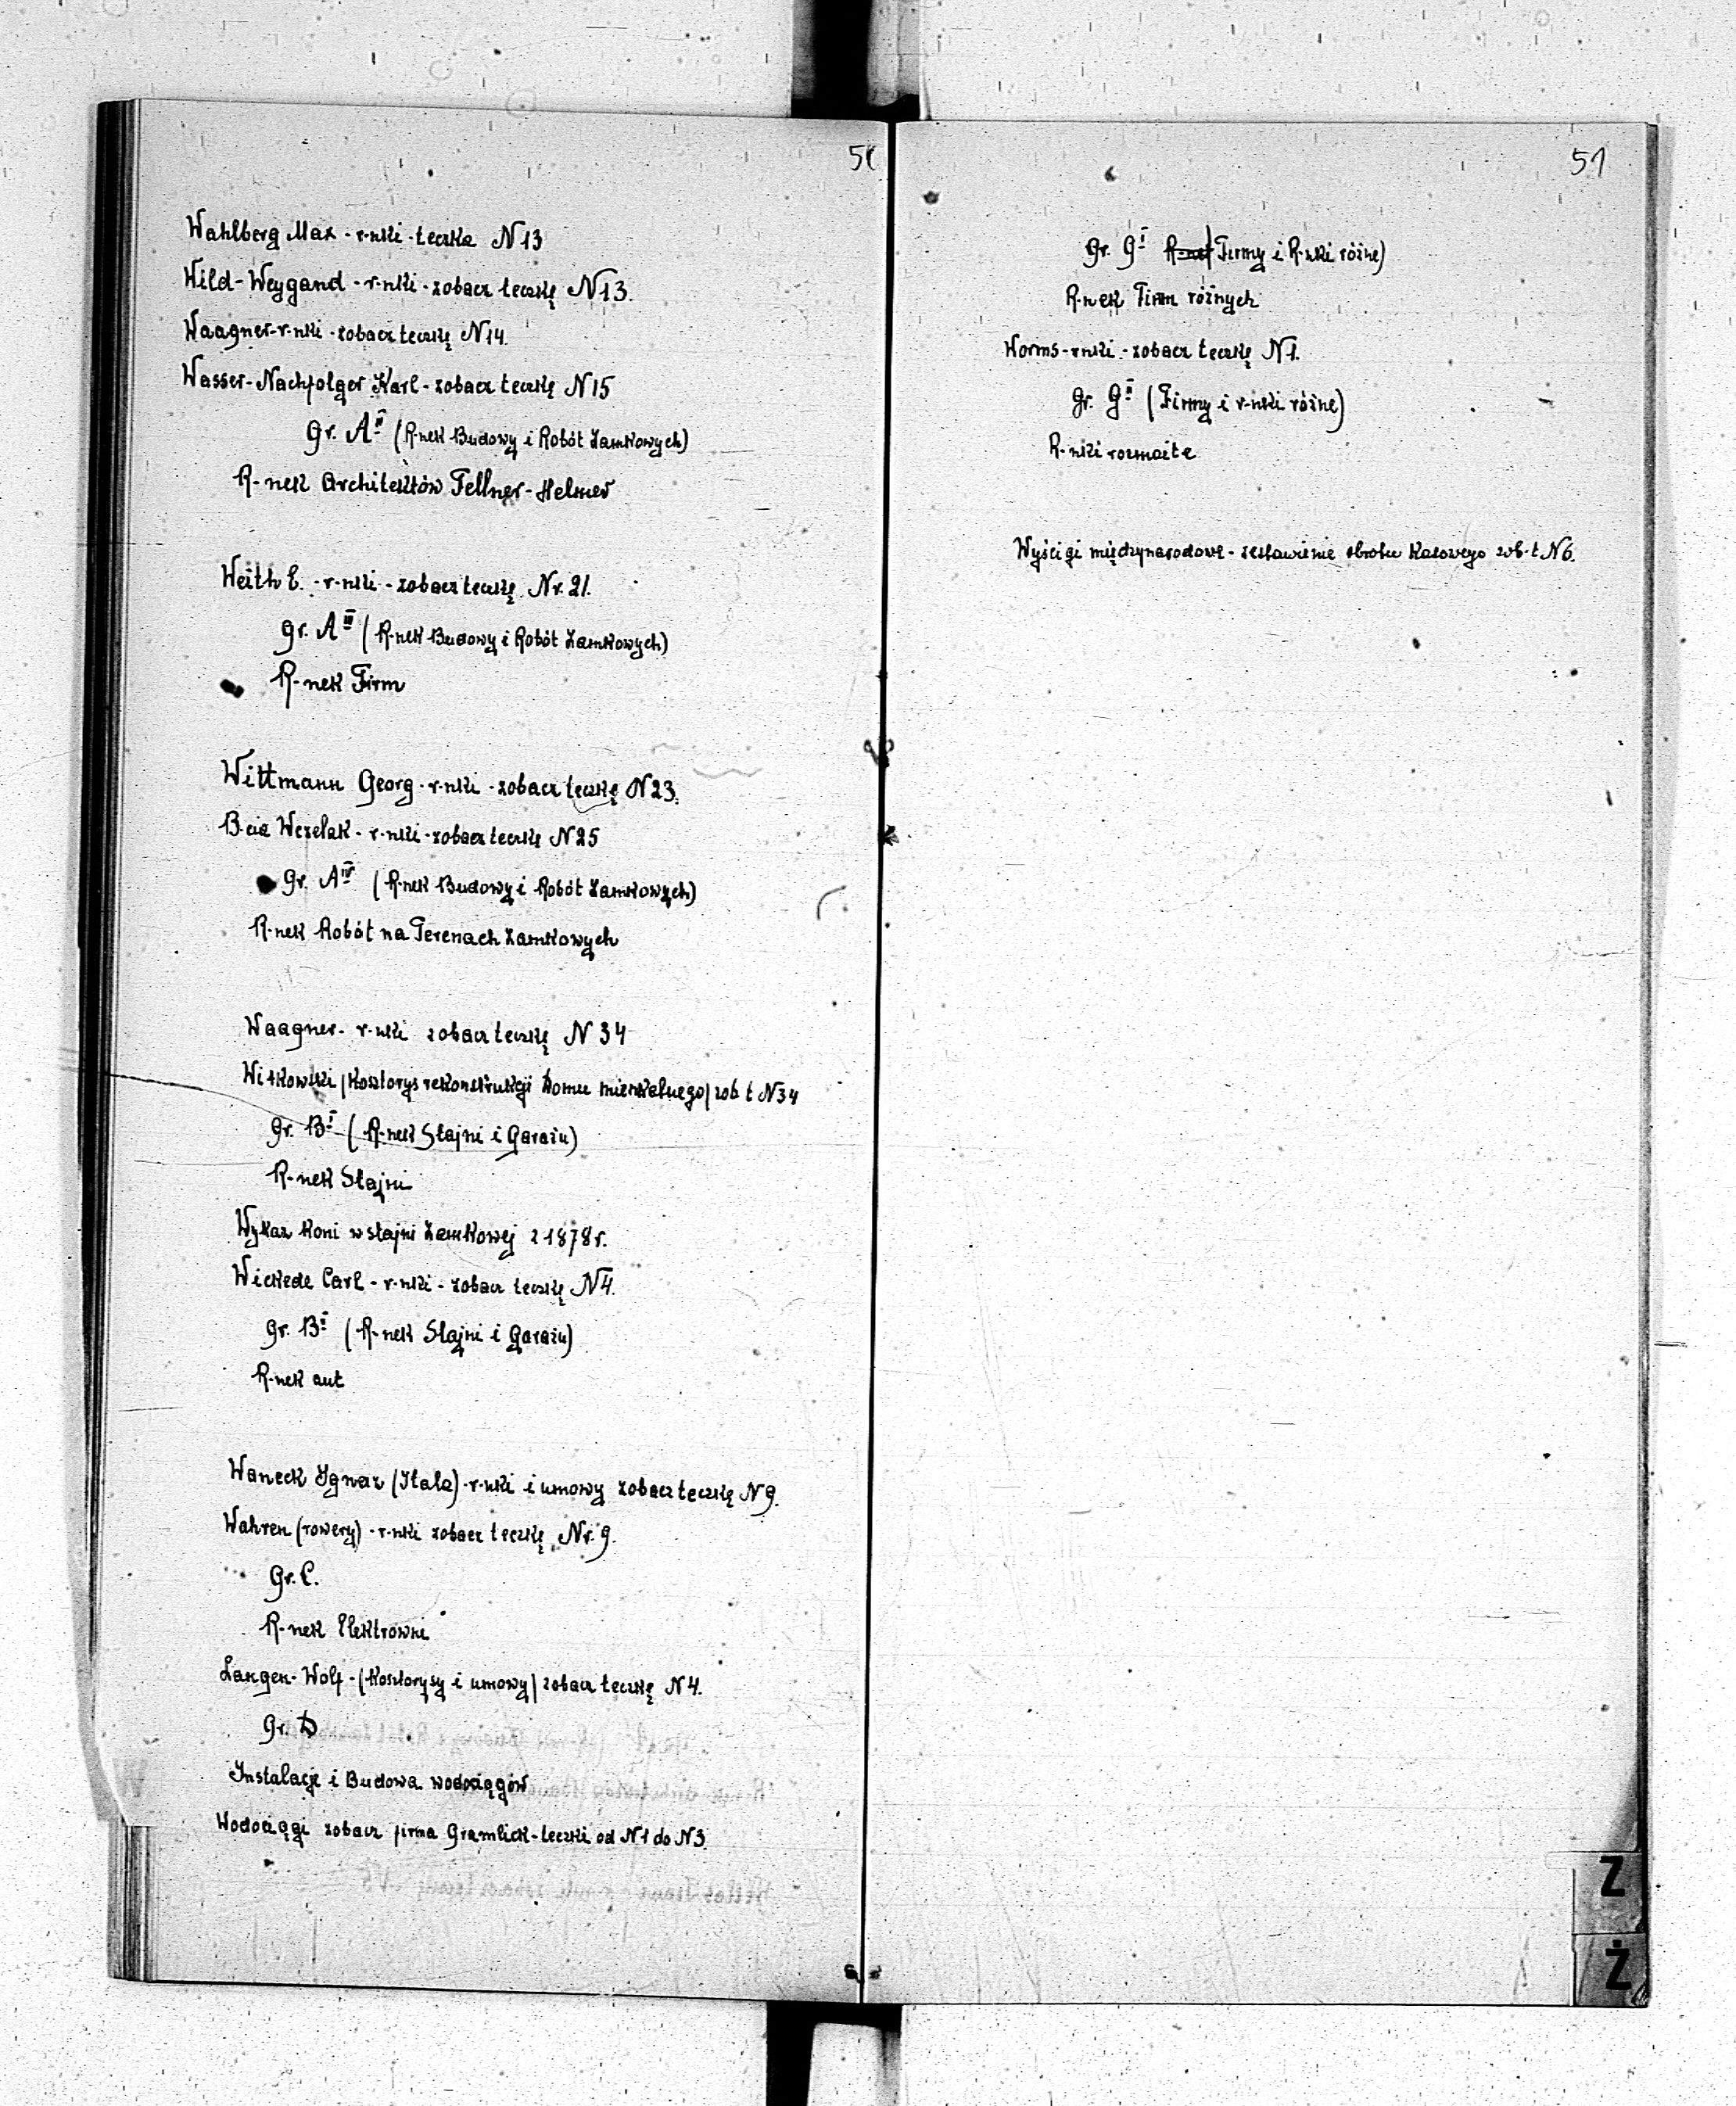 50
Wahlberg Max - r-nki - teczka N13
Wild-Weygand - r-nki - zobacz teczkę N13.
Waagner - r-nki - zobacz teczkę N14.
Wasser-Nachfolger Karl - zobacz teczkę N15
gr. A II (R-nek Budowy i Robót Zamkowych)
R-nek Architektów Fellner-Helmer
Weith E. - r-nki - zobacz teczkę Nr. 21.
gr. A III (R-nek Budowy i Robót Zamkowych)
R-nek Firm
Wittmann Georg - r-nki - zobacz teczkę N23.
B-cia Wczelak - r-nki - zobacz teczkę N25
gr. A IV (R-nek Budowy i Robót Zamkowych)
R-nek Robót na Terenach Zamkowych
Waagner - r-nki zobacz teczkę N 34
Witkowski (Kosztorys rekonstrukcji Domu mieszkalnego) zob. t N34
gr. B I (R-nek Stajni i Garażu)
R-nek Stajni
Wykaz Koni w stajni Zamkowej z 1878 r.
Wickede Carl - r-nki - zobacz teczkę N4.
gr. B II (R-nek Stajni i Garażu)
R-nek aut
Waneck Ignaz (Itala) - r-nki i umowy zobacz teczkę N9.
Wahren (rowery) - r-nki zobacz teczkę Nr. 9.
Gr. C.
R-nek Elektrowni
Langen-Wolf - (Kosztorysy i umowy) zobacz teczkę N4.
Gr. D
Instalacje i Budowa wodociągów
Wodociągi zobacz firma Gramlick - teczki od N1 do N3.
51
gr. G I Firmy i R-nki różne)
R-nek Firm różnych
Worms - r-nki - zobacz teczkę N1.
gr. G II (Firmy i r-nki różne)
R-nki rozmaite
Wyścigi międzynarodowe - zestawienie obrotu Kasowego zob. t N6.
Z
Ż